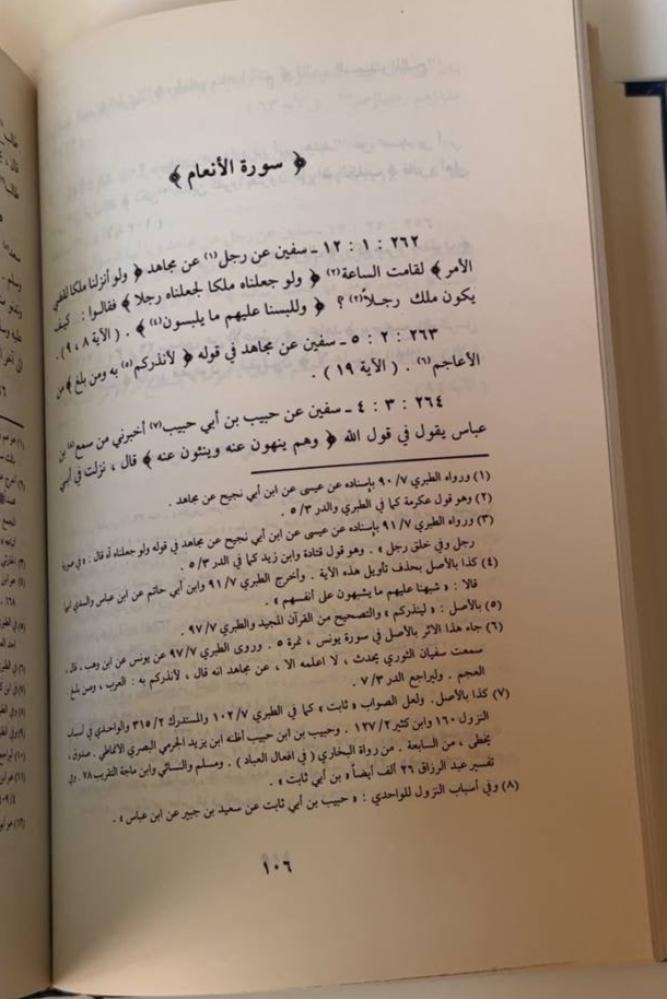 ﴿ سورة الأنعام ﴾
٢٦٢ : ١ : ١٢ ـ سفين عن رجل (١) عن مجاهد ﴿ ولو أنزلنا ملكا لقضي
الأمر ﴾ لقامت الساعة (٢) ﴿ ولو جعلناه ملكا لجعلناه رجلا ﴾ فقالوا : كيف
يكون ملك رجلاً (٣) ؟ ﴿ وللبسنا عليهم ما يلبسون (٤) ﴾ . ( الآية ٨ ، ٩ ) .
٢٦٣ : ٢ : ٥ ـ سفين عن مجاهد في قوله ﴿ لأنذركم (٥) به ومن بلغ ﴾ من
الأعاجم (٦) . ( الآية ١٩ ) .
٢٦٤ : ٣ : ٤ ـ سفين عن حبيب بن أبي حبيب (٧) أخبرني من سمع (٨) بن
عباس يقول في قول الله ﴿ وهم ينهون عنه وينئون عنه ﴾ قال ، نزلت في أبي
(١) ورواه الطبري ٩٠/٧ بإسناده عن عيسى عن ابن أبي نجيح عن مجاهد .
(٢) وهو قول عكرمة كما في الطبري والدر ٥/٣ .
(٣) ورواه الطبري ٩١/٧ بإسناده عن عيسى عن ابن أبي نجيح عن مجاهد في قوله ولو جعلناه أنه قال : « في صورة
رجل وفي خلق رجل » . وهو قول قتادة وابن زيد كما في الدر ٥/٣ .
(٤) كذا بالأصل بحذف تأويل هذه الآية . وأخرج الطبري ٩١/٧ وابن أبي حاتم عن ابن عباس والسدي انهما
قالا : « شبهنا عليهم ما يشبهون على أنفسهم » .
(٥) بالأصل : « لينذركم » والتصحيح من القرآن المجيد والطبري ٩٧/٧ .
(٦) جاء هذا الاثر بالأصل في سورة يونس ، نمرة ٥ . وروى الطبري ٩٧/٧ عن يونس عن ابن وهب ، قال ،
سمعت سفيان الثوري يحدث ، لا اعلمه الا ، عن مجاهد انه قال ، لأنذركم به : العرب ، ومن بلغ :
العجم . وليراجع الدر ٧/٣ .
(٧) كذا بالأصل. ولعل الصواب « ثابت » كما في الطبري ١٠٢/٧ والمستدرك ٣١٥/٢ والواحدي في أسباب
النزول ١٦٠ وابن كثير ١٢٧/٢ . وحبيب بن ابن حبيب أظنه ابن يزيد الجرمي البصري الانماطي . صدوق ،
يخطى ، من السابعة . من رواة البخاري ( في افعال العباد ) . ومسلم والنسائي وابن ماجة التقريب ٧٨ . وفي
تفسير عبد الرزاق ٢٦ ألف أيضاً « بن أبي ثابت » .
(٨) وفي أسباب النزول للواحدي : « حبيب بن أبي ثابت عن سعيد بن جبير عن ابن عباس » .
١٠٦